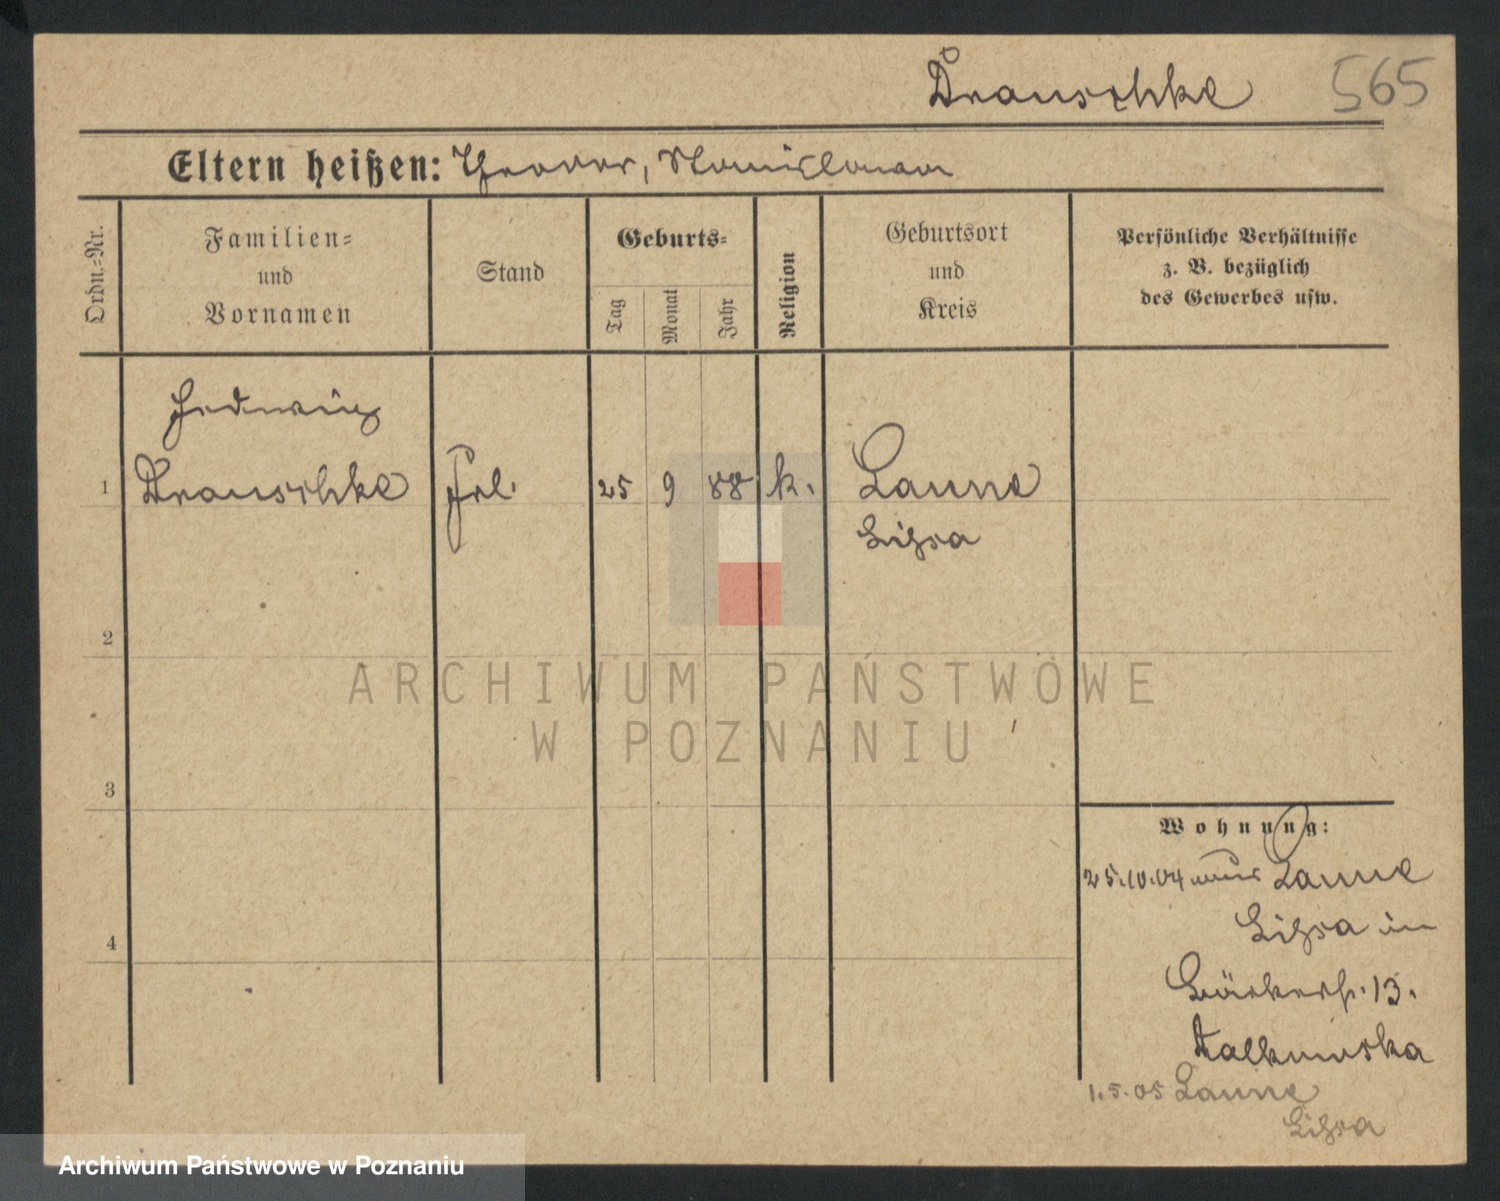 Drauschke 565
Eltern heißen: Theodor, Stanislawa
Ordn.-Nr.
Familien-
und
Vornamen
Stand
Geburts-
Tag
Monat
Jahr
Religion
Geburtsort
und
Kreis
Persönliche Verhältnisse
z. B. bezüglich
des Gewerbes usw.
Hedwig
1 Drauschke Frl. 25 9 88 k. Laune
Lissa
2
3
4
Wohnung:
25.10.04 Laune
Lissa in
Bäckerstr. 13.
1.5.05 Laune
Lissa
ARCHIWUM PAŃSTWOWE
W POZNANIU
Archiwum Państwowe w Poznaniu